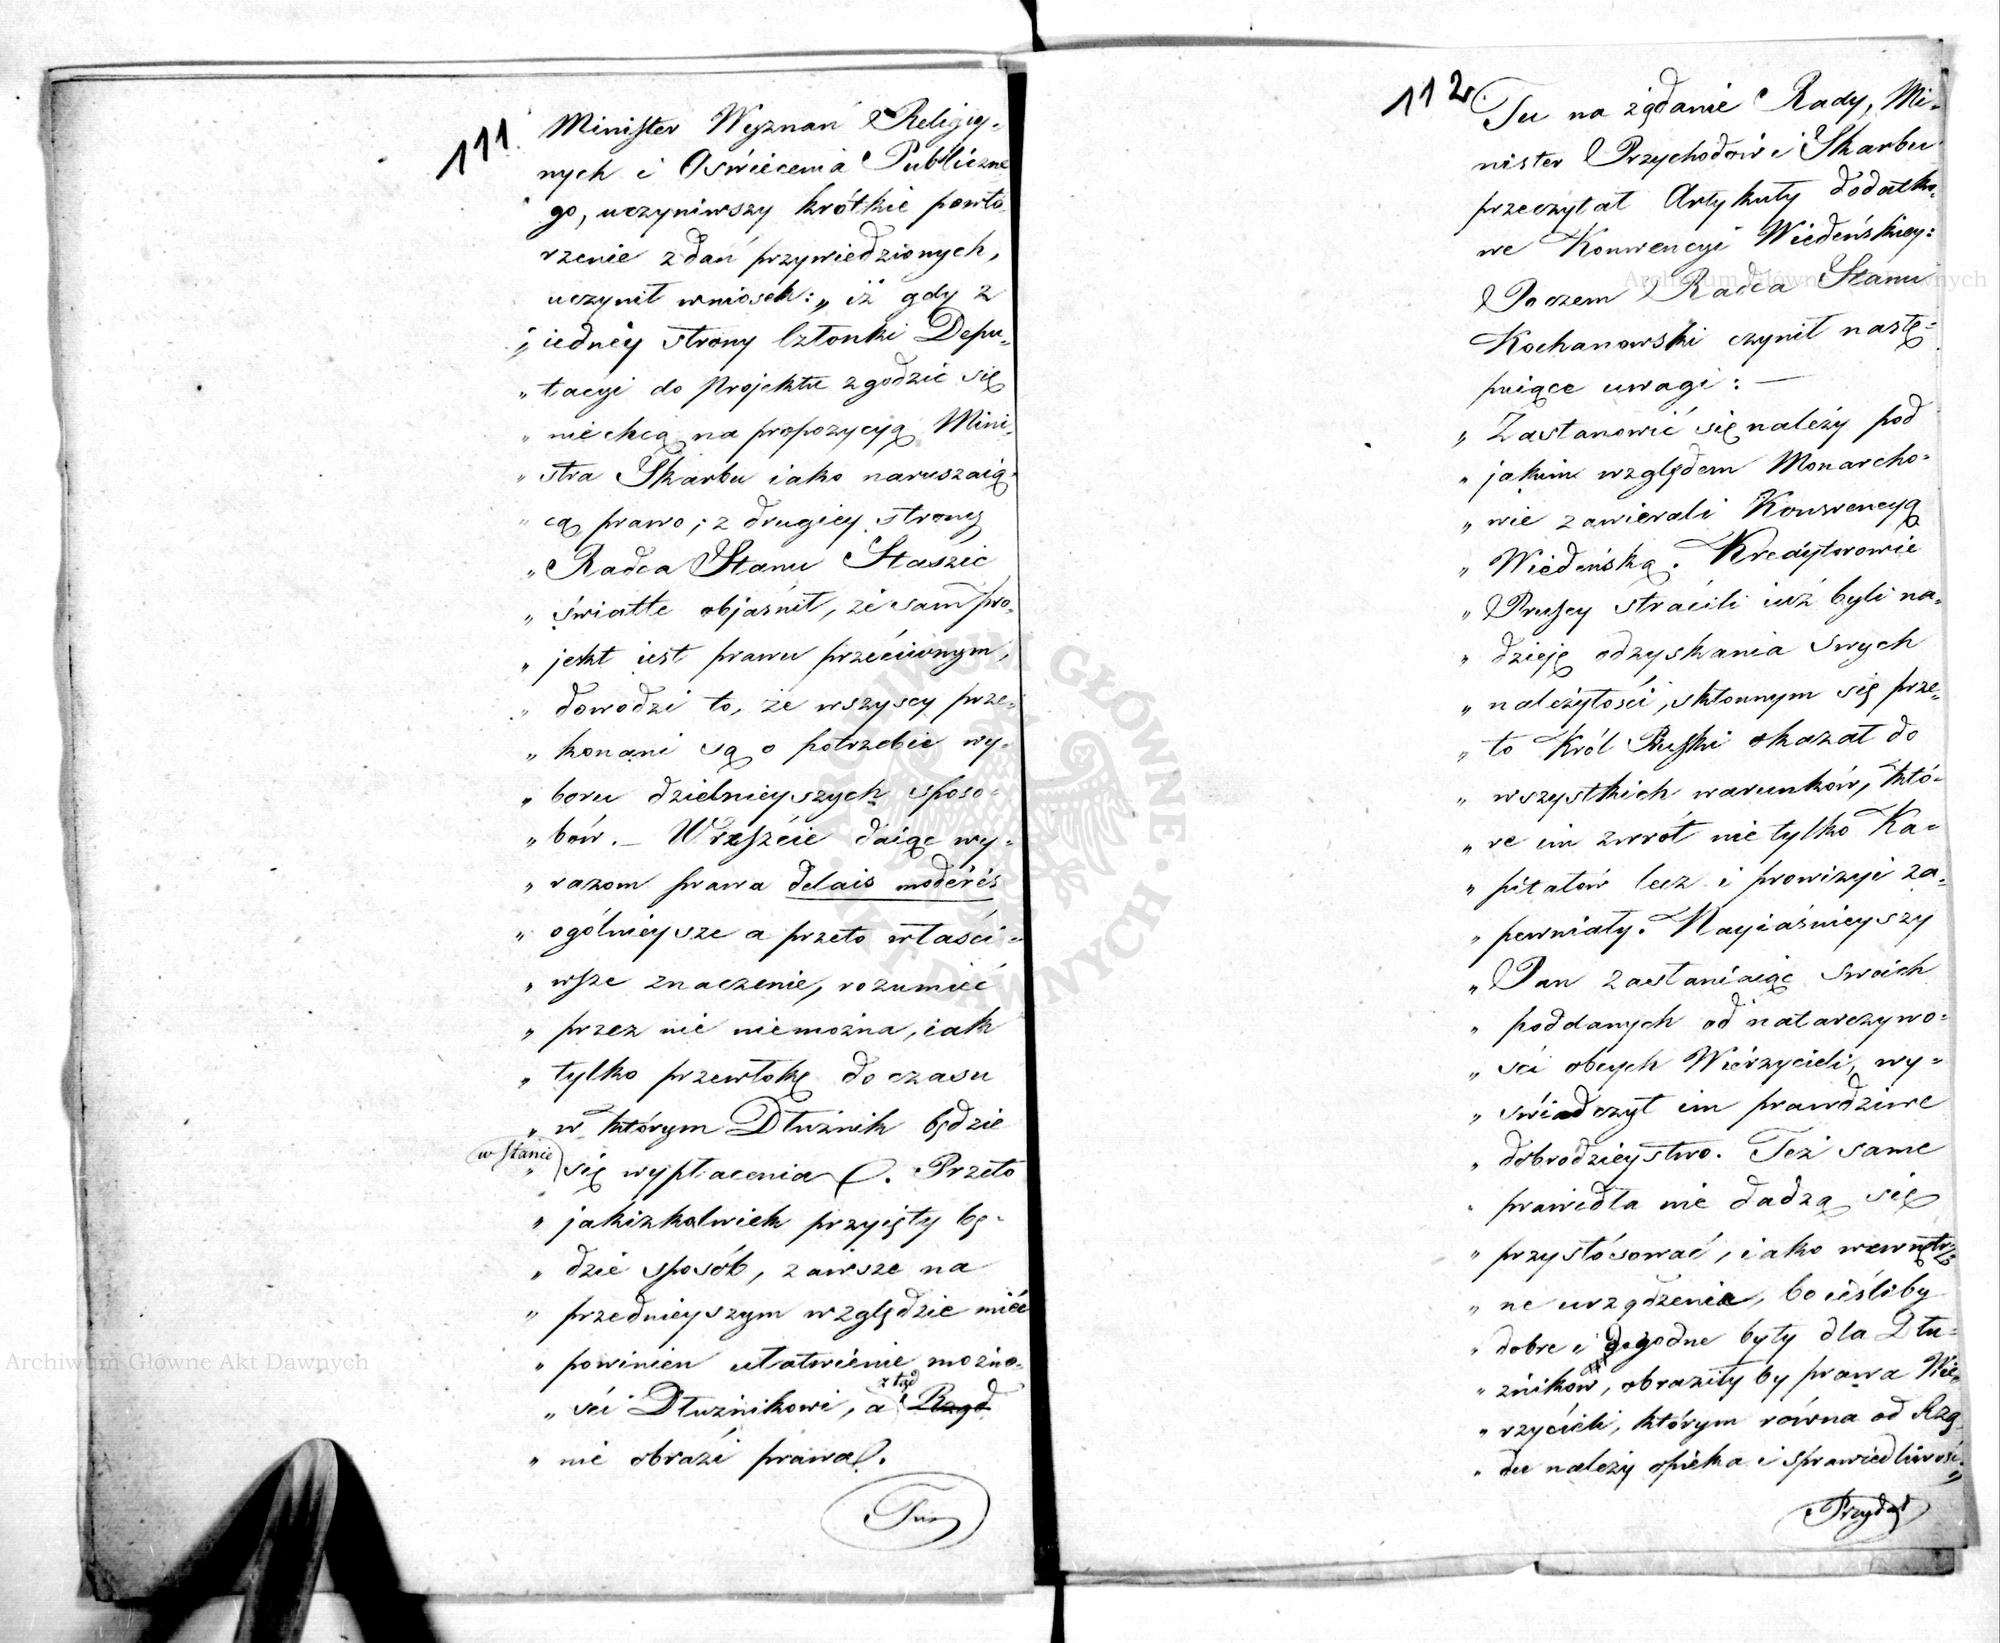 111.
Minister Wyznań Religiy-
nych i Oświecenia Publiczne
go, uczyniwszy krótkie powtó-
rzenie zdań przywiedzionych,
uczynił wniosek: „ iż gdy z
„ iedney strony Członki Depu-
„ tacyi do Projektu zgodzić się
„ niechcą na propozycyą Mini-
„ stra Skarbu iako naruszaią-
„ cą prawo; z drugiey strony
„ Radca Stanu Staszic
„ światłe objaśnił, że sam pro-
„ jekt iest prawu przeciwnym,
„ dowodzi to, że wszyscy prze-
„ konani są o potrzebie wy-
„ boru dzielnieyszych sposo-
„ bów. – Wreszcie daiąc wy-
„ razom prawa delais modérés
„ ogólnieysze a przeto właści-
„ wsze znaczenie, rozumieć
„ przez nie niemożna, iak
„ tylko przewłokę do czasu
„ w którym Dłużnik będzie
w Stanie
„ się wypłacenia. Przeto
„ jakiżkolwiek przyięty bę-
„ dzie sposób, zawsze na
„ przednieyszym względzie mieć
„ powinien ułatwienie możno-
z tąd
„ ści Dłużnikowi, a Rząd
„ nie obrazi prawa.
Tu
112.
Tu na żądanie Rady, Mi-
nister Przychodów i Skarbu
przeczytał Artykuły dodatko-
we Konwencyi Wiedeńskiey:
Poczem Radca Stanu
Kochanowski czynił nastę-
puiące uwagi: —
„ Zastanowić się należy pod
„ jakim względem Monarcho-
„ wie zawierali Konwencyą
„ Wiedeńską. Kredytorowie
„ Pruscy stracili iuż byli na-
„ dzieję odzyskania swych
„ należytości, skłonnym się prze-
„ to Król Pruski okazał do
„ wszystkich warunków, któ-
„ re im zwrót nie tylko Ka-
„ pitałów lecz i prowizyi za-
„ pewniały. Nayiaśnieyszy
„ Pan zasłaniaiąc swoich
„ poddanych od natarczywo-
„ ści obcych Wierzycieli, wy-
„ świadczył im prawdziwe
„ dobrodzieystwo. Też same
„ prawidła nie dadzą się
„ przystósować, iako wewnętrz-
„ ne urządzenia, bo ieśliby
„ dobre i dogodne były dla Dłu-
„ żników, obraziły by prawa Wie-
„ rzycieli, którym równa od Rzą
„ du należy opieka i sprawiedliwość."
Przydał
Archiwum Główne Akt Dawnych
Archiwum Główne Akt Dawnych
ARCHIWUM GŁÓWNE · AKT DAWNYCH ·